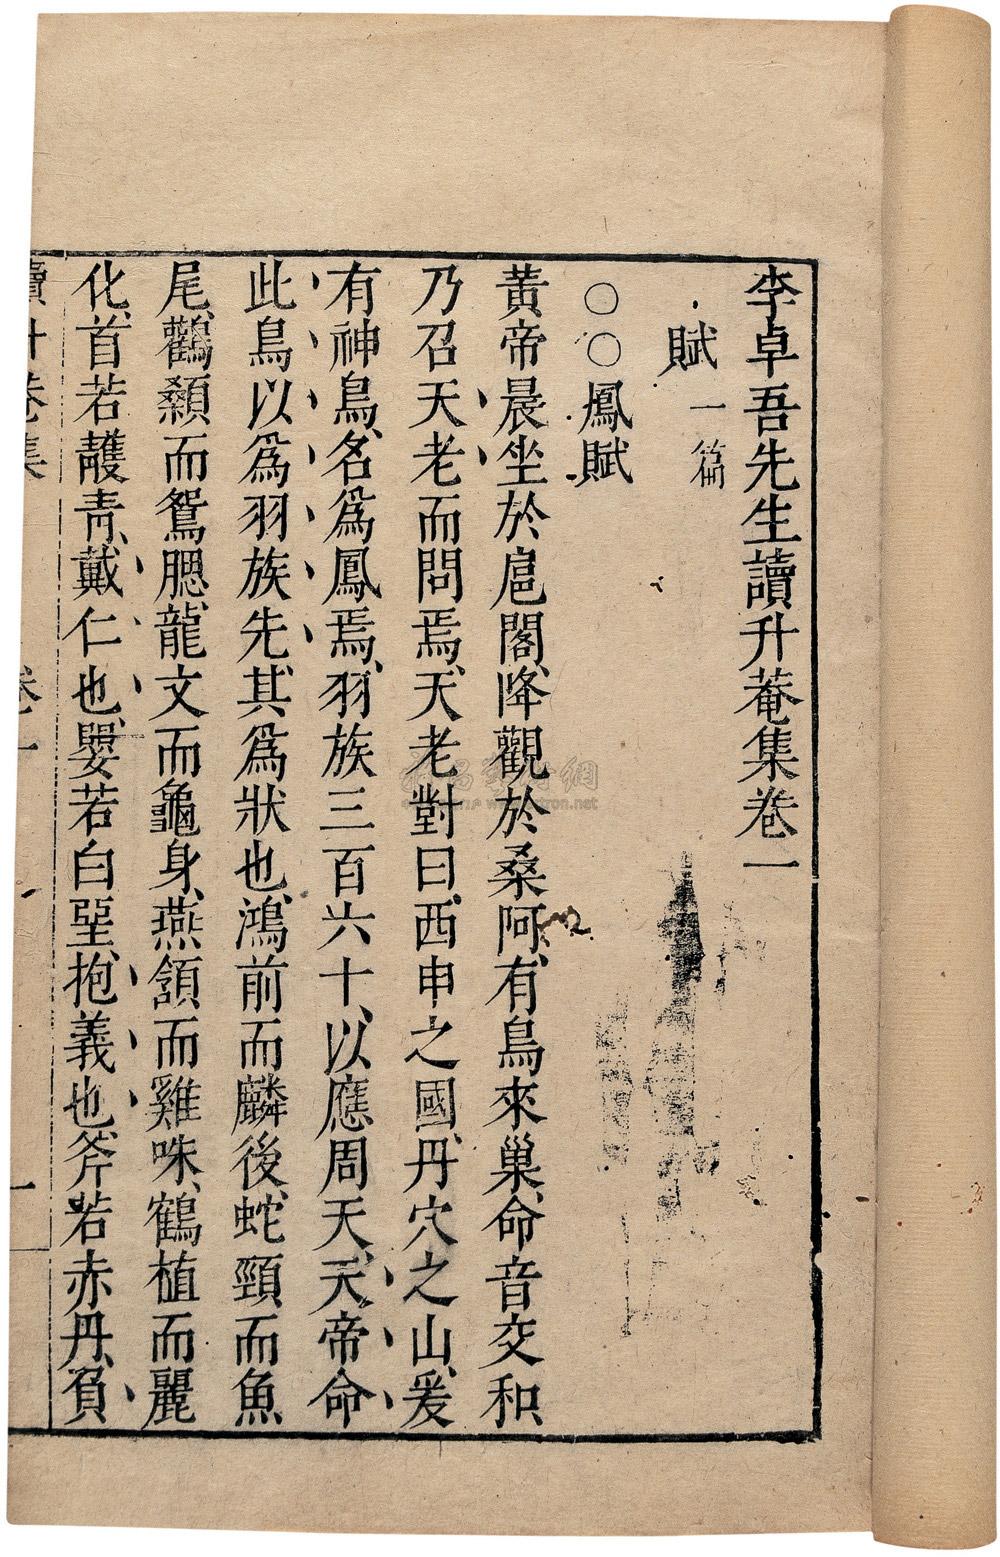 李卓吾先生讀升菴集卷一
賦一篇
○○鳳賦
黃帝晨坐於扈閣、降觀於桑阿、有鳥來巢、命音交和、
乃召天老而問焉、天老對曰、西申之國、丹穴之山、爰
有神鳥、名爲鳳焉、羽族三百六十、以應周天、天帝命
此鳥以爲羽族先、其爲狀也、鴻前而麟後、蛇頸而魚
尾、鸛顙而鴛腮、龍文而龜身、燕頷而雞咮、鶴植而麗
化、首若䕶青、戴仁也、嬰若白堊、抱義也、斧若赤丹、負
讀升菴集 卷一 一